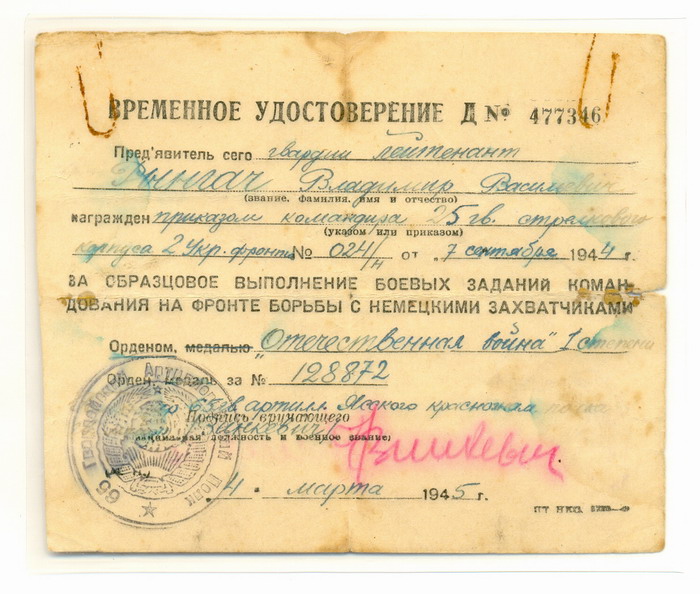 ВРЕМЕННОЕ УДОСТОВЕРЕНИЕ Д № 477346
Пред'явитель сего гвардии лейтенант
Рынгач Владимир Васильевич
(звание, фамилия, имя и отчество)
награжден приказом командира 25 гв. стрелкового
(указом или приказом)
корпуса 2 Укр. фронта № 024/н от „7 сентября 1944 г.
ЗА ОБРАЗЦОВОЕ ВЫПОЛНЕНИЕ БОЕВЫХ ЗАДАНИЙ КОМАН-
ДОВАНИЯ НА ФРОНТЕ БОРЬБЫ С НЕМЕЦКИМИ ЗАХВАТЧИКАМИ
Орденом, медалью „Отечественная война" 1 степени
Орден, медаль за № 128872
гв артилл Ясского краснозна полка
Подпись вручающего
должность и военное звание)
4 " марта 1945 г.
66 Гвардейский Артиллерийский Полк